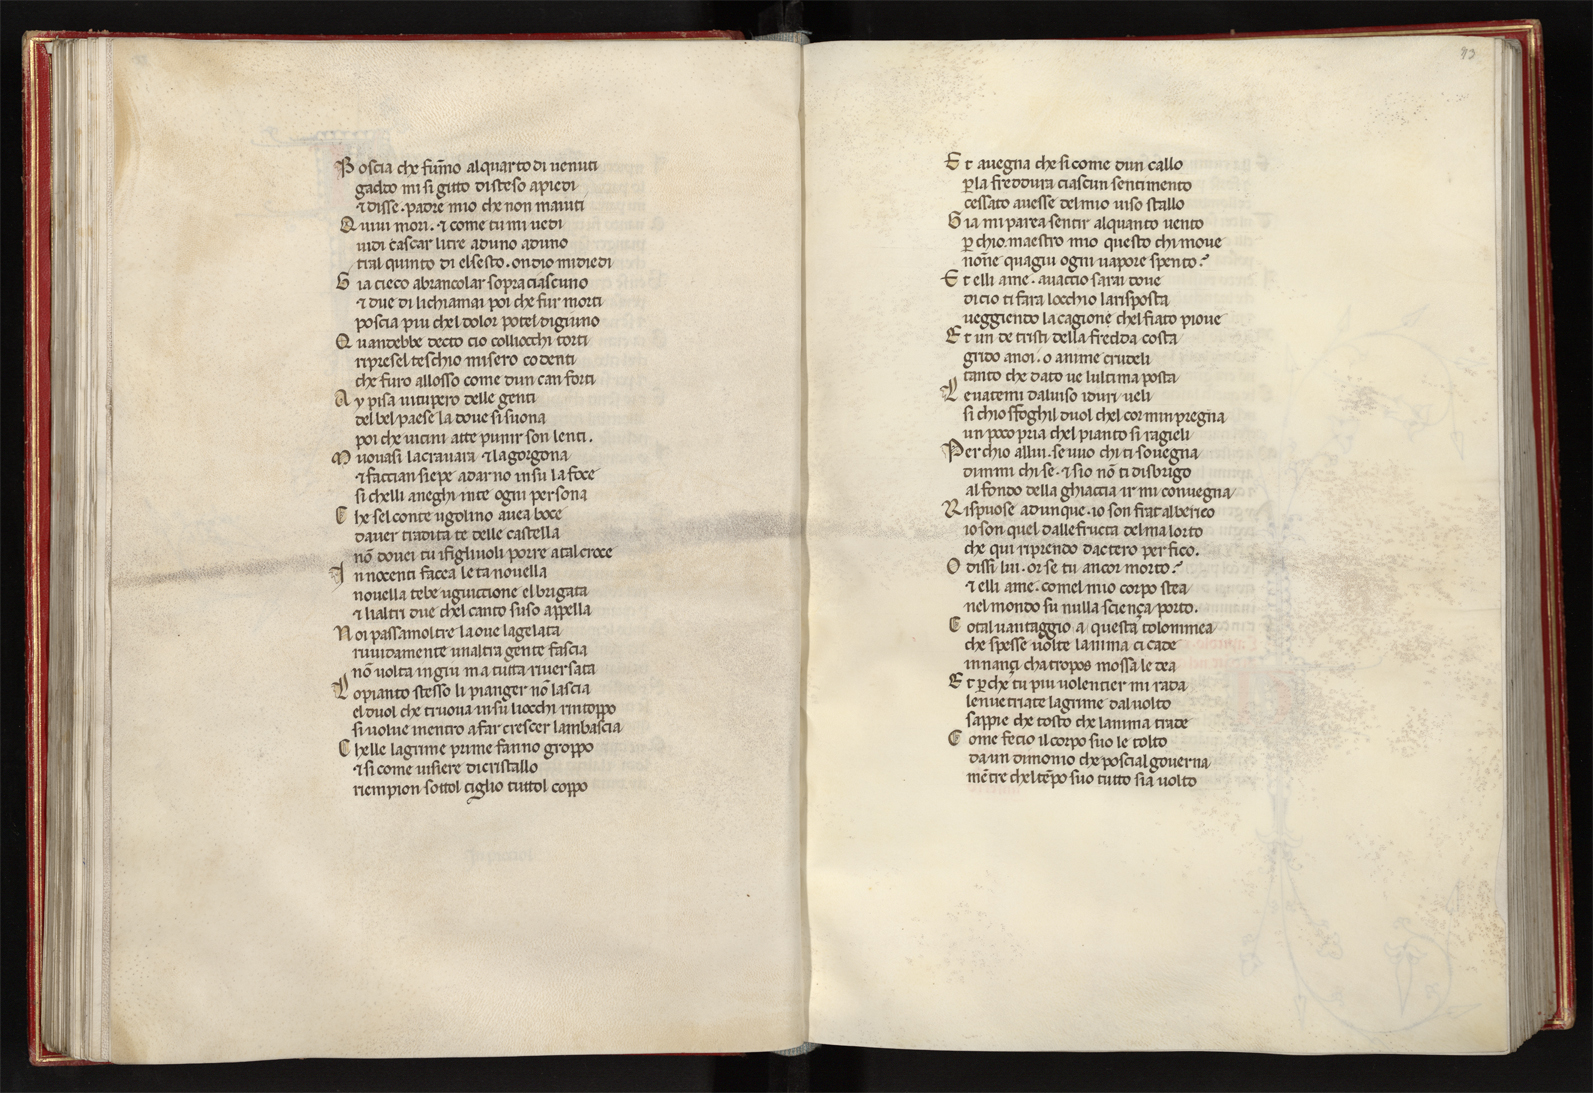 Poscia che fum̄o alquarto di uenuti
gaddo mi si gitto disteso apiedi
⁊ disse . padre mio che non maiuti
Quiui mori . ⁊ come tu mi uedi
uidi cascar litre aduno aduno
tral quinto di elsesto . ondio midiedi
Gia cieco abrancolar sopra ciascuno
⁊ due di lichiamai poi che fur morti
poscia piu chel dolor potel digiuno
Quandebbe decto cio colliocchi torti
ripresel teschio misero co denti
che furo allosso come dun can forti
Ay pisa uitupero delle genti
del bel paese la doue si suona
poi che uicini atte punir son lenti .
Muouasi lacrauara ⁊ lagorgona
⁊ faccian siepe adarno insu la foce
si chelli aneghi inte ogni persona
Che sel conte ugolino auea boce
dauer tradita te delle castella
nō douei tu ifigliuoli porre atal croce
Innocenti facea leta nouella
nouella tebe uguiccione elbrigata
⁊ lialtri due chel canto suso appella
Noi passamoltre laoue lagelata
ruuidamente unaltra gente fascia
nō uolta ingiu ma tutta riuersata
Lopianto stesso li pianger nō lascia
elduol che truoua insu liocchi rintoppo
si uolue inentro afar crescer lambascia
Chelle lagrime prime fanno groppo
⁊ si come uisiere dicristallo
riempion sottol ciglio tuttol coppo
93
Et auegna che si come dun callo
ꝑla freddura ciascun sentimento
cessato auesse delmio uiso stallo
Gia mi parea sentir alquanto uento
ꝑ chio . maestro mio questo chi moue
non̄e quagiu ogni uapore spento ?
Et elli ame . auaccio sarai doue
dicio ti fara locchio larisposta
ueggiendo lacagione chel fiato pioue
Et un de tristi della fredda costa
grido anoi . o anime crudeli
tanto che dato ue lultima posta
Leuatemi daluiso iduri ueli
si chio sfoghil duol chel cor minpregna
un poco pria chel pianto si ragieli
Per chio allui . se uuo chi ti souegna
dimmi chi se . ⁊ sio nō ti disbrigo
al fondo della ghiaccia ir mi conuegna
Rispuose adunque . io son frat alberico
io son quel dallefructa delmalorto
che qui riprendo dactero per fico .
O dissi lui . or se tu ancor morto ?
⁊ elli ame . comel mio corpo stea
nel mondo su nulla sciença porto .
Cotal uantaggio a questa tolommea
che spesse uolte lanima ci cade
innançi chatropos mossa le dea
Et ꝑche tu piu uolentier mi rada
lenuetriate lagrime dal uolto
sappie che tosto che lanima trade
Come fecio il corpo suo le tolto
da un dimonio che poscial gouerna
mētre chel tēpo suo tutto sia uolto